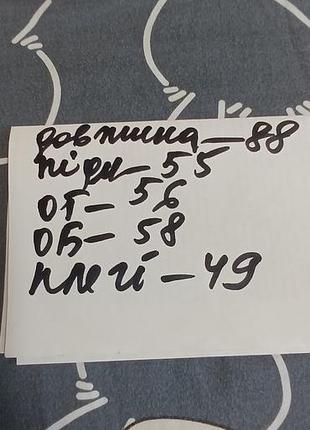 довжина - 88
під - 55
ОТ - 56
ОБ - 58
плечі - 49